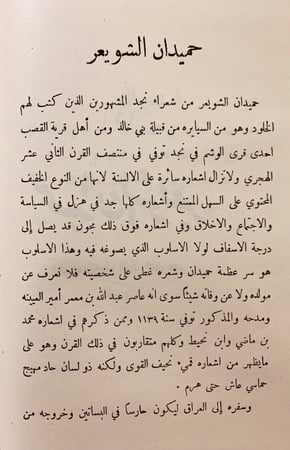 حميدان الشويعر
حميدان الشويعر من شعراء نجد المشهورين الذين كتب لهم
الخلود وهو من السيايره من قبيلة بني خالد ومن أهل قرية القصب
احدى قرى الوشم في نجد توفي في منتصف القرن الثاني عشر
الهجري ولاتزال اشعاره سائرة على الالسنة لانها من النوع الخفيف
المحتوي على السهل الممتنع وأشعاره كلها جد في هزل في السياسة
والاجتماع والاخلاق وفي اشعاره فوق ذلك مجون قد يصل إلى
درجة الاسفاف لولا الاسلوب الذي يصوغه فيه وهذا الاسلوب
هو سر عظمة حميدان وشعره غطى على شخصيته فلا نعرف عن
مولده ولا عن وفاته شيئاً سوى انه عاصر عبد الله بن معمر أمير العيينه
ومدحه والمذكور توفي سنة ١١٣٩ وممن ذكرهم في اشعاره محمد
بن ماضي وابن نحيط وكلهم متقاربون في ذلك القرن وهو على
مايظهر من اشعاره قمىء نحيف القوى ولكنه ذو لسان حاد مهيج
حماسي عاش حتى هرم .
وسفره إلى العراق ليكون حارسا في البساتين وخروجه من